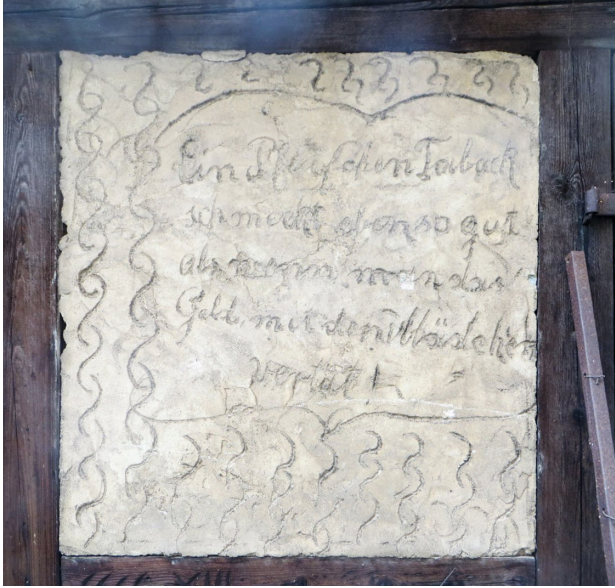 Ein Pfeifchen Taback
schmeckt ebenso gut
als wenn man das
Geld mit den Mädchen
vertät!